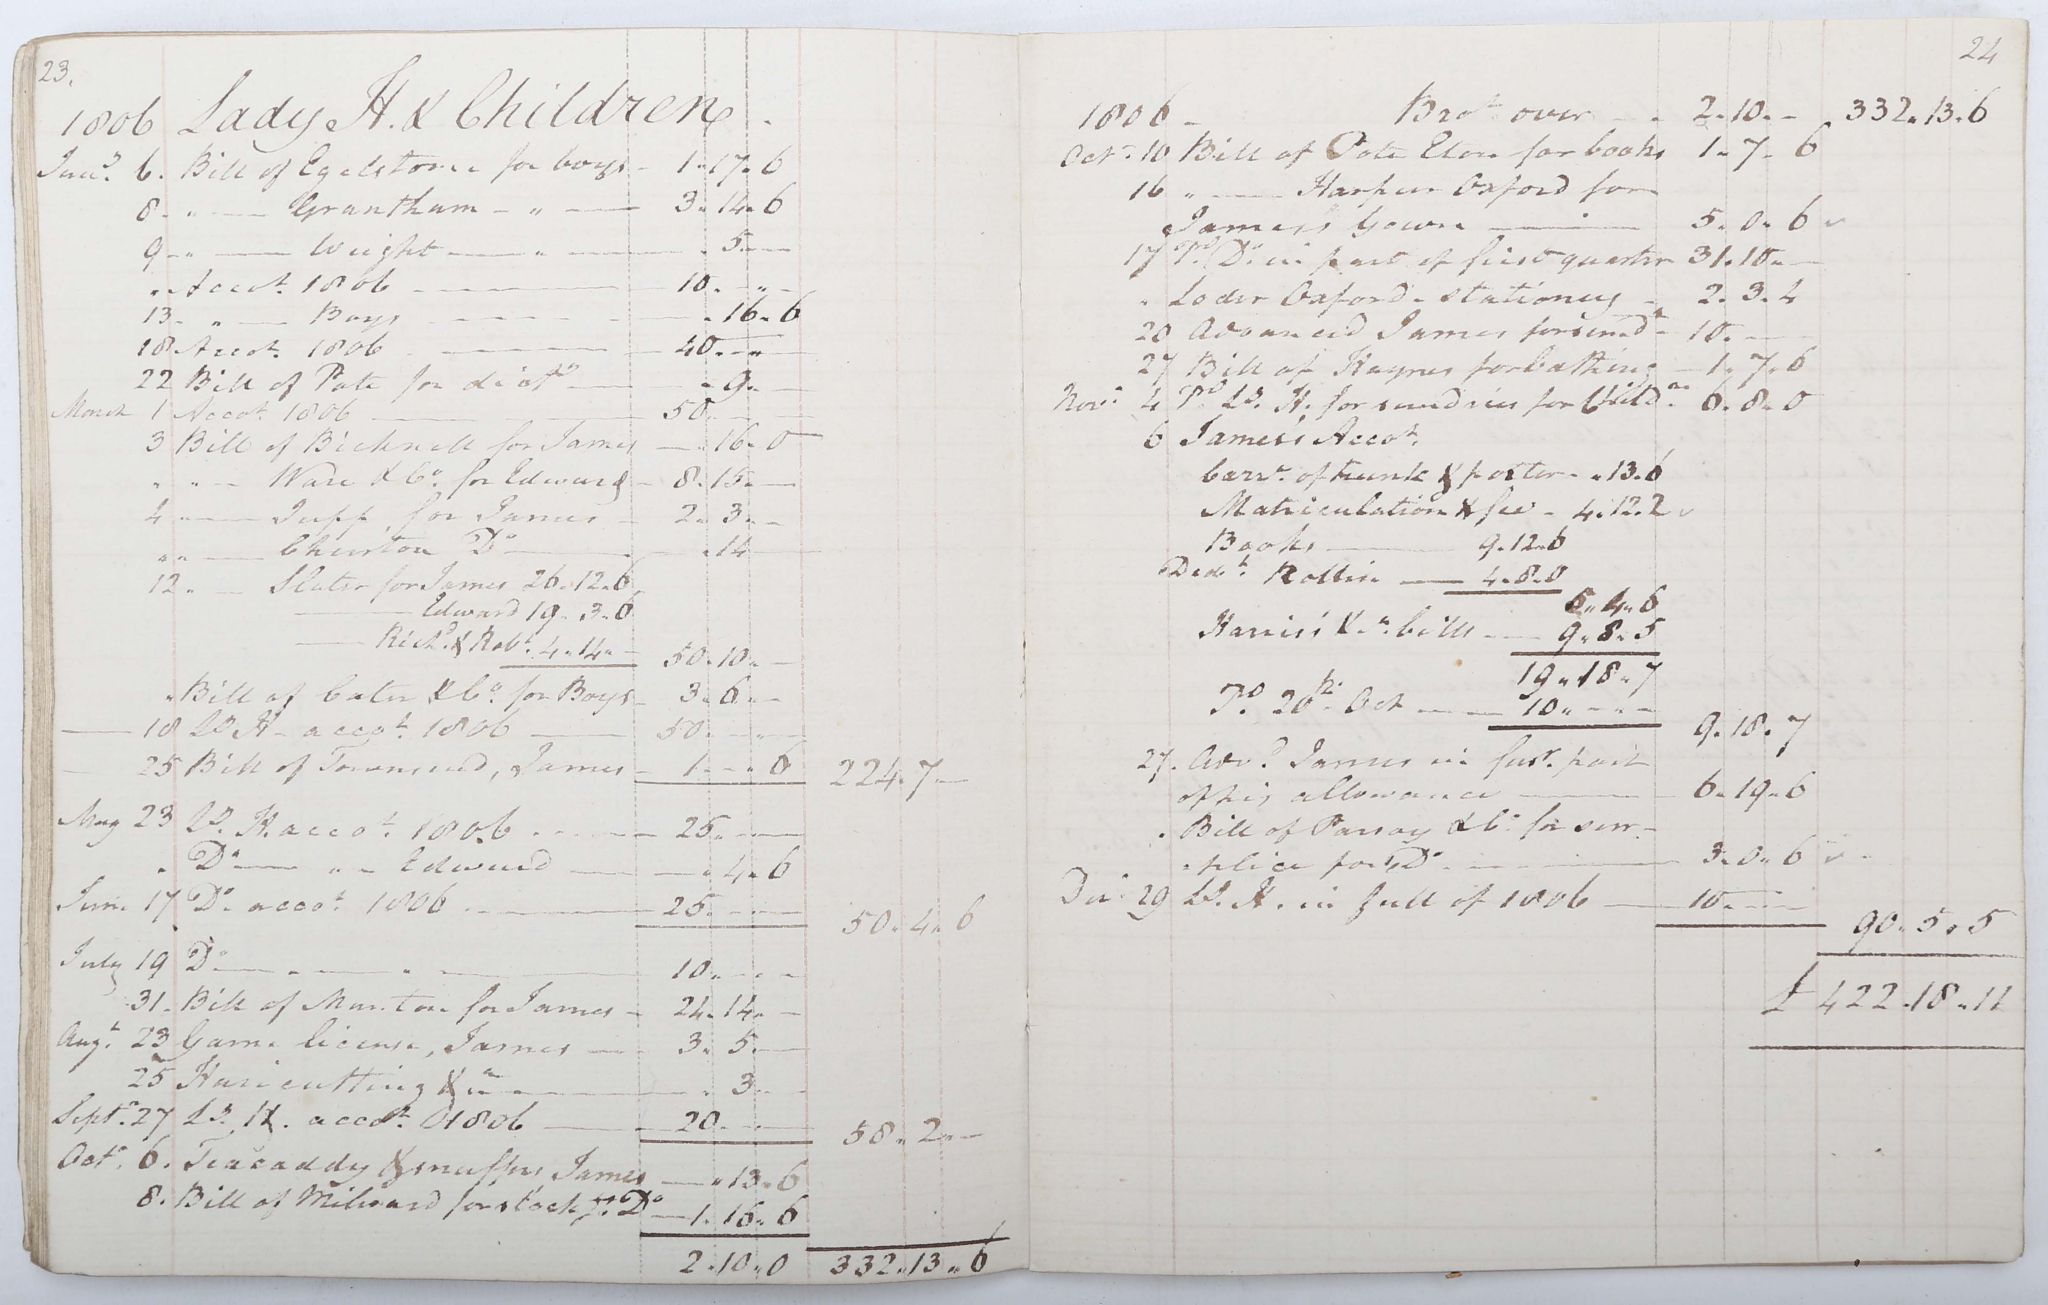 23.
1806 Lady H. & Children
Jan.y 6. Bill of Egelstone for boys - 1.17.6
8 - " Grantham - " - 3.14.6
9 - " Wright - " - . 5. -
" Accot. 1806 - 10. - " -
13 - " - Boys - . 16.6
18 Accot. 1806 - 40. - " -
22 Bill of Pote for - . 9. -
March 1 Accot. 1806 - 50. - -
3 Bill of Bicknell for James - . 16.0
" " - Ware & Co. for Edward - 8.15. -
4 " - Jupp, for James - 2.3. -
" " - Churton Do. - . 14 -
12 " - Slater for James 26.12.6
- Edward 19.3.6
- Richd. & Robt. 4.14. - 50.10. -
" Bill of Cater & Co. for Boys - 3.6. -
- 18 Ly. H - accot. 1806 - 50. - -
- 25 Bill of Townsend, James - 1. - . 6 224.7. -
May 23 Ly. H. accot. 1806 - 25. - -
" Do. - " - Edward - . 4.6
June 17 Do. accot. 1806 - 25. - - 50.4.6
July 19 Do. - " - " - 10. - . -
31. Bill of Manton for James - 24.14. -
Augt. 23 Game license, James - 3.5. -
25 Haircutting &c. - . 3 -
Sept. 27 Ly. H. accot. 1806 - 20. - - 58.2. -
Octr. 6. Teacaddy & snuffers James - " 13.6
8. Bill of Milward for stock Do - 1.16.6
2.10.0 332.13.6
24
1806 - Brot. over - - 2.10. - 332.13.6
Octr. 10 Bill of Pote Eton for books 1.7.6
16 " - Harper Oxford for
James's Gown - 5.0.6
17 Pd. Do. in part of first quarter 31.10. -
" Loder Oxford - Stationery - 2.3.4
20 Advanced James for - 10. - -
27 Bill of Haynes for bathing - 1.7.6
Novr. 4 Pd. Ly. H. for sundries for Childn. 6.8.0
6 James's Accot.
Carre. of trunk & porter - " 13.6
Matriculation & fee - 4.12.2
Books - 9.12.6
Dedt. Rollin - 4.8.0
5.4.6
Harris's &c. bills - 9.8.5
19.18.7
Pd. 20th. Oct - 10. - . -
9.18.7
27. Advd. James in furr. part
of his allowance - 6.19.6
. Bill of & Co. for sur-
-plice for Do. - 3.0.6
Decr. 29 Ly. H. in full of 1806 - 10. - -
90.5.5
£ 422.18.11